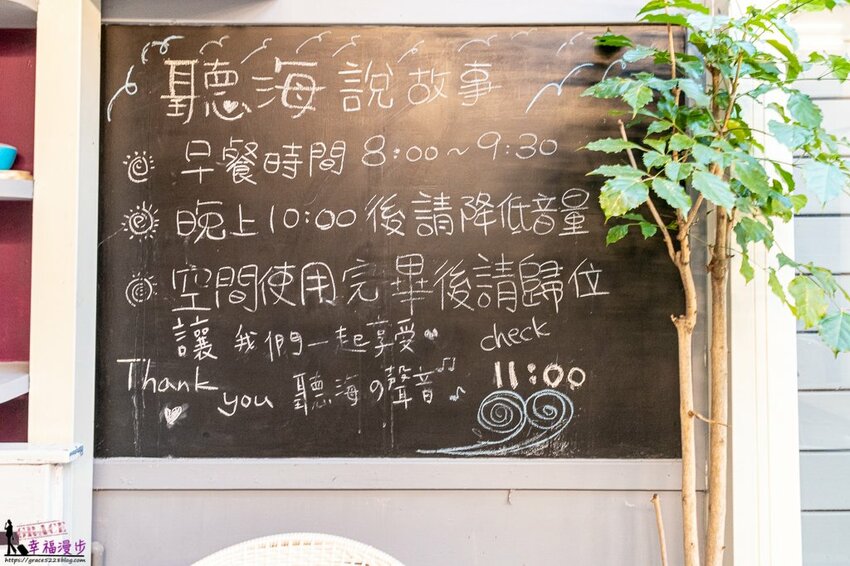 聽海說故事
早餐時間 8:00~9:30
晚上10:00後請降低音量
空間使用完畢後請歸位
讓我們一起享受
check
Thank you 聽海の聲音
11:00
GRACE
幸福漫步
https://grace5228blog.com